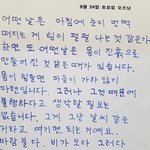 9월 26일 토요일 오프닝
어떤날은 아침에 눈이 번쩍
떠지는 게 힘이 펄펄 나는 것 같은가
하면 또 어떤날은 몸이 진흙으로
만들어진 것 같은 때가 있습니다.
몸이 힘들면 마음이 가라앉기
마련입니다. 그러나 그것 때문에
불행하다고 생각할 필요는
없습니다. 그게 그냥 날씨 같은
거라고 여기면 되는 거예요.
바람 불다, 비가 오다 그러다